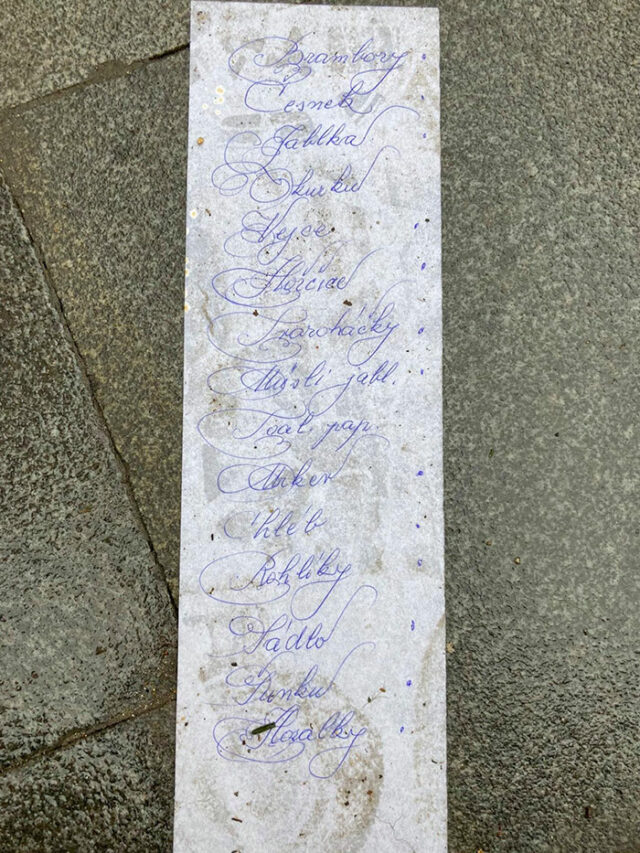 Brambory
Česnek
Jablka
Okurku
Vejce
Hořčice
Tvaroháčky
Müsli jabl.
Toal. pap.
Mrkev
Chléb
Rohlíky
Sádlo
Šunku